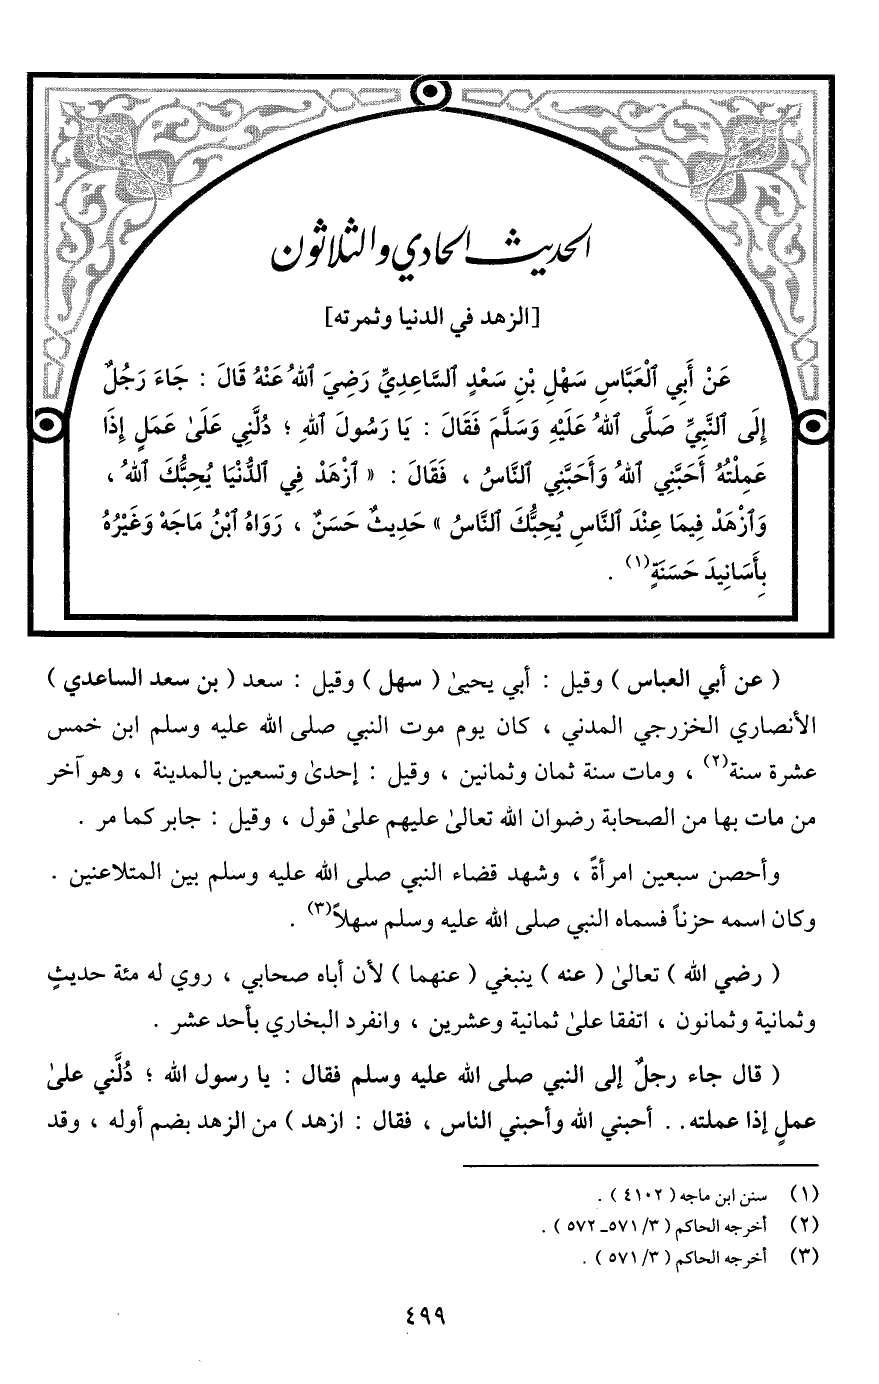 الحديث الحادي والثلاثون
[الزهد في الدنيا وثمرته]
عَنْ أَبِي ٱلْعَبَّاسِ سَهْلِ بْنِ سَعْدٍ ٱلسَّاعِدِيِّ رَضِيَ ٱللهُ عَنْهُ قَالَ : جَاءَ رَجُلٌ
إِلَى ٱلنَّبِيِّ صَلَّى ٱللهُ عَلَيْهِ وَسَلَّمَ فَقَالَ : يَا رَسُولَ ٱللهِ ؛ دُلَّنِي عَلَىٰ عَمَلٍ إِذَا
عَمِلْتُهُ أَحَبَّنِي ٱللهُ وَأَحَبَّنِي ٱلنَّاسُ ، فَقَالَ : « ٱزْهَدْ فِي ٱلدُّنْيَا يُحِبُّكَ ٱللهُ ،
وَٱزْهَدْ فِيمَا عِنْدَ ٱلنَّاسِ يُحِبُّكَ ٱلنَّاسُ » حَدِيثٌ حَسَنٌ ، رَوَاهُ ٱبْنُ مَاجَهْ وَغَيْرُهُ
بِأَسَانِيدَ حَسَنَةٍ(١) .
( عن أبي العباس ) وقيل : أبي يحيىٰ ( سهل ) وقيل : سعد ( بن سعد الساعدي )
الأنصاري الخزرجي المدني ، كان يوم موت النبي صلى الله عليه وسلم ابن خمس
عشرة سنة(٢) ، ومات سنة ثمان وثمانين ، وقيل : إحدىٰ وتسعين بالمدينة ، وهو آخر
من مات بها من الصحابة رضوان الله تعالىٰ عليهم علىٰ قول ، وقيل : جابر كما مر .
وأحصن سبعين امرأةً ، وشهد قضاء النبي صلى الله عليه وسلم بين المتلاعنين .
وكان اسمه حزناً فسماه النبي صلى الله عليه وسلم سهلاً(٣) .
( رضي الله ) تعالىٰ ( عنه ) ينبغي ( عنهما ) لأن أباه صحابي ، روي له مئة حديثٍ
وثمانية وثمانون ، اتفقا علىٰ ثمانية وعشرين ، وانفرد البخاري بأحد عشر .
( قال جاء رجلٌ إلى النبي صلى الله عليه وسلم فقال : يا رسول الله ؛ دُلَّني علىٰ
عملٍ إذا عملته.. أحبني الله وأحبني الناس ، فقال : ازهد ) من الزهد بضم أوله ، وقد
(١) سنن ابن ماجه ( ٤١٠٢ ) .
(٢) أخرجه الحاكم ( ٣/ ٥٧١ـ ٥٧٢ ) .
(٣) أخرجه الحاكم ( ٣/ ٥٧١ ) .
٤٩٩